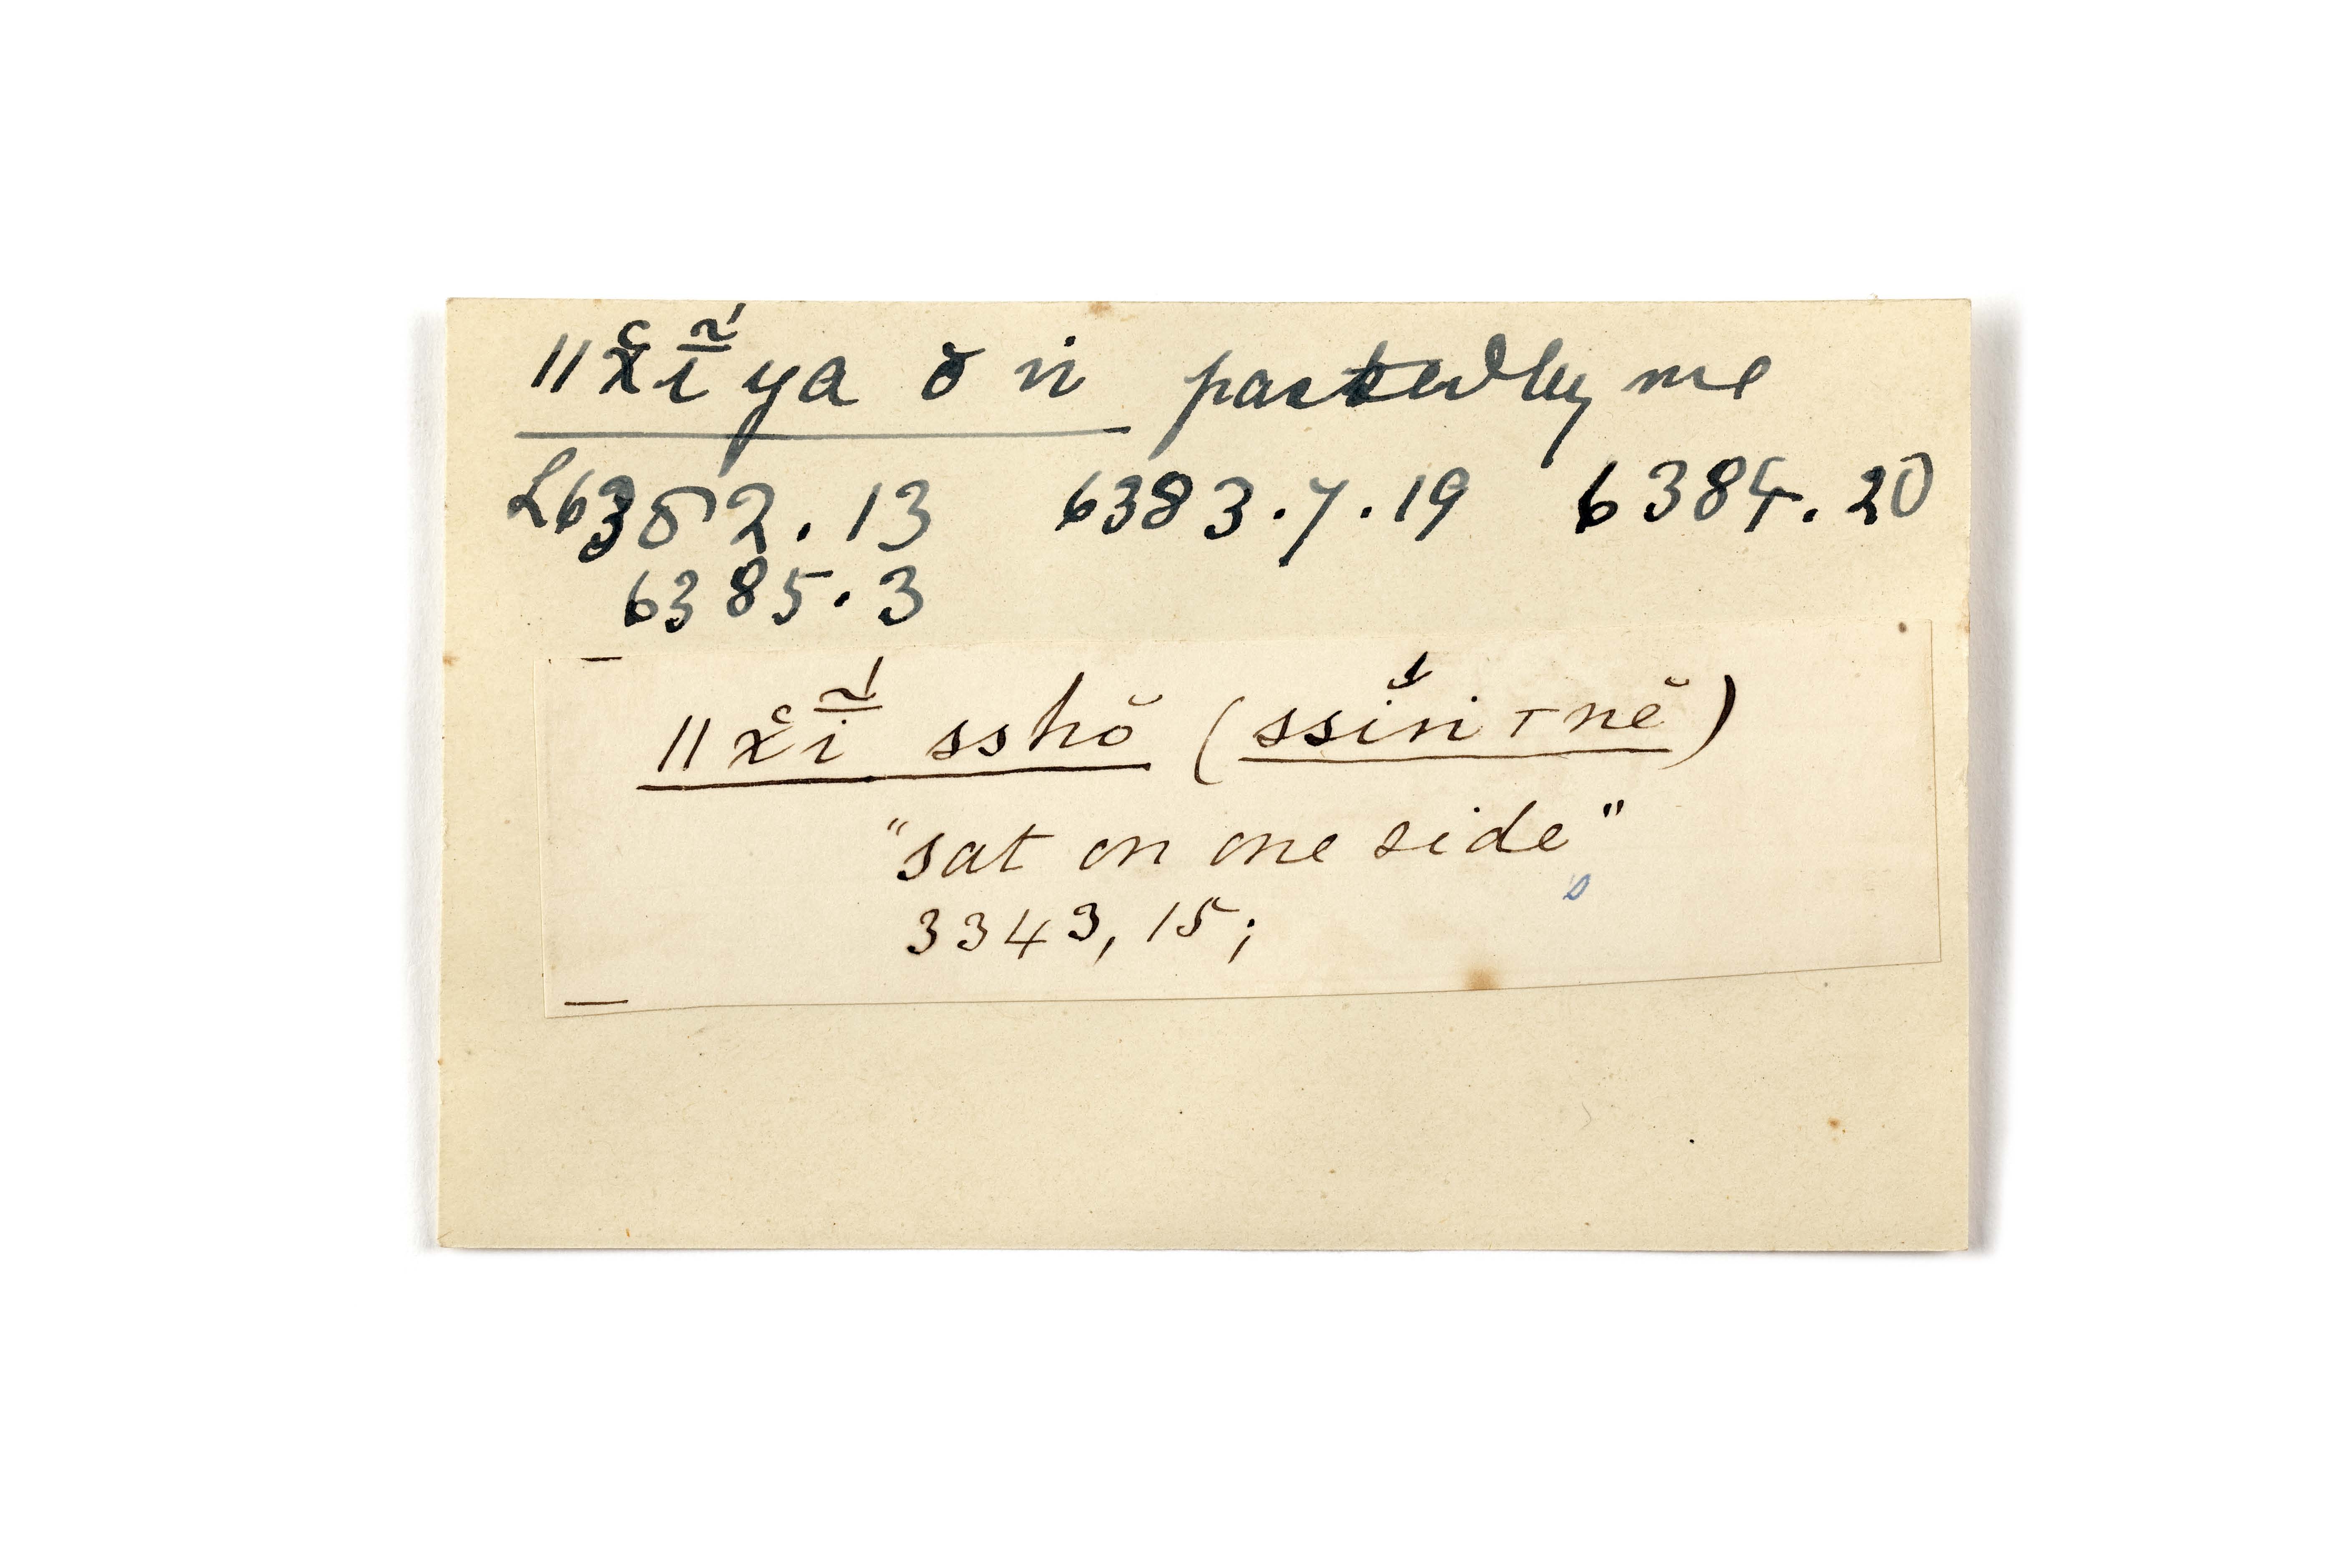 ǁx̆ĩ́ ya ŏ n passed by me
L 6382.13 6383.7.19 6384.20
6385.3
ǁx̆ĩ́ sshŏ (ssĭ́n ⊤ nĕ)
"sat on one side"
3343, 15;